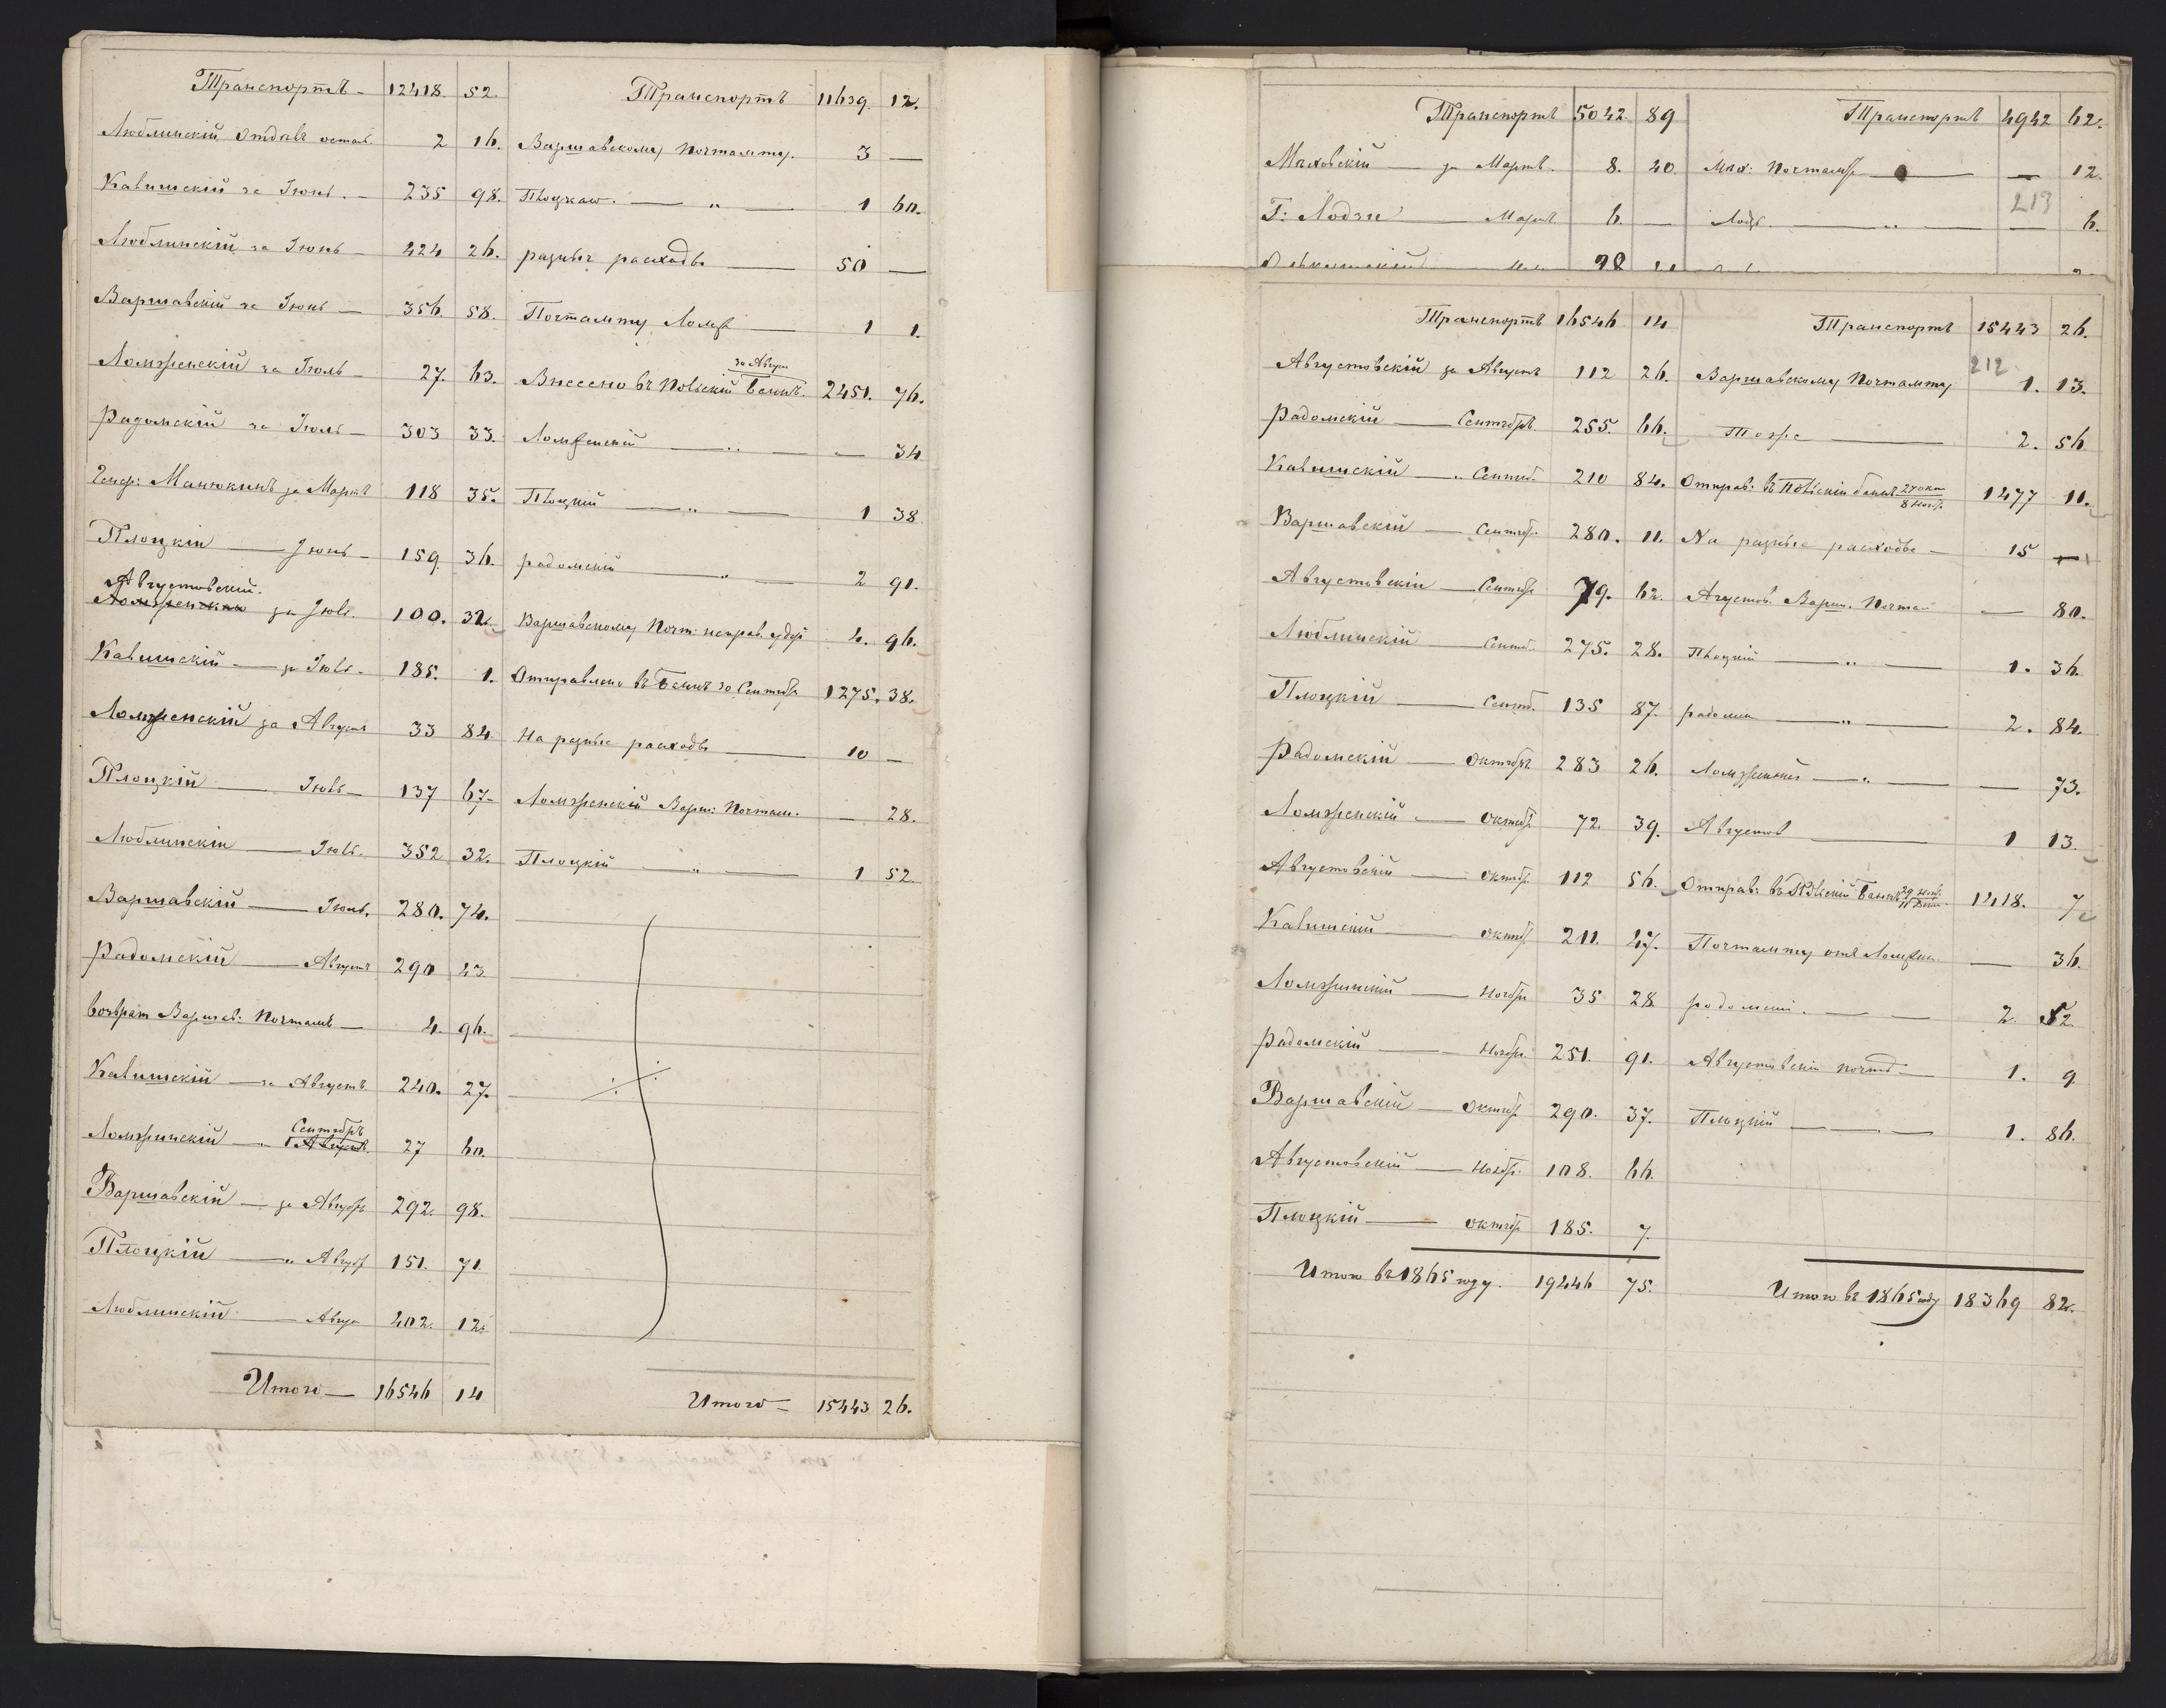 Транспортъ — 12418. 52. Транспортъ 11639. 12.
Люблинскій Отдѣлъ остав. 2 16. Варшавскому Почтамту. 3 —
Калишскій за Іюнь. — 235 98. Плоцкаго. — „ — 1 60.
Люблинскій за Іюнь — 424 26. разные расходы — 50 —
Варшавскій за Іюнь — 356. 58. Почтамту Ломж — 1 1.
за Августъ
Ломженскій за Іюль — 27. 63. Внесено въ Польскій Банкъ. 2451. 76.
Радомскій за Іюль — 303 33. Ломженскій — „ — — 34
Генер: Манюкинъ за Мартъ 118 35. Плоцкій — „ — 1 38
Плоцкій — Іюнь — 159 36. радомскій — „ — 2 91.
Августовскій.
Ломженскій за Іюль. 100. 32. Варшавскому Почт: неправ. удер 4. 96.
Калишскій — за Іюль. 185. 1. Отправлено въ Банкъ за Сентябрь 1275. 38.
Ломженскій за Августъ 33 84. На разные расходы — 10 —
Плоцкій — Іюль — 137 67. Ломженскій Варш: Почтам. — 28.
Люблинскій — Іюль. 352 32. Плоцкій — „ — 1 52.
Варшавскій — Іюль. 280. 74.
Радомскій — Августъ 290 43
возврат Варшав: Почтамтъ — 4. 96.
Калишскій — за Августъ 240. 27.
Сентябрь
Ломжинскій — „ Августъ 27 60.
Варшавскій — за Августъ 292. 98.
Плоцкій — „ Август 151. 71.
Люблинскій — Август 402. 12.
Итого — 16546 14 Итого = 15443 26.
Транспортъ 5042. 89 Транспортъ 4942 62.
Мѣховскій — за Мартъ. 8. 40. Мѣх: Почтамт — — 12.
213
Г: Лодзи — Мартъ 6. — Лодз. — „ — — 6.
98
Транспортъ 16546 14 Транспортъ 15443 26.
212
Августовскій за Августъ 112 26. Варшавскому Почтамту 1. 13.
Радомскій — Сентябрь 255. 66. Тоже — 2. 56
Калишскій — „ Сентяб. 210 84. Отправ: въ Польскій банкъ 27 окт / 8 нояб. 1477 11.
Варшавскій — Сентяб. 280. 11. На разные расходы — 15 —
Августовскій — Сентяб 79. 62. Августов. Варш. Почтам — 80.
Люблинскій — Сентяб. 275. 28. Плоцкій — „ — 1. 36.
Плоцкій — Сентяб. 135 87. радомск — „ — 2. 84.
Радомскій — Октябрь 283 26. Ломженскій — „ — — 73.
Ломженскій — Октяб 72. 39. Августов — 1 13.
Августовскій — Октяб. 112 56. Отправ: въ Польскій Банкъ 29 нояб. / 11 Дек. 1418. 7
Калишскій — октяб 211. 47. Почтамту отъ Ломжин — 36.
Ломжинскій — Ноябр 35 28 радомскі. — — 2. 52
Радомскій — Ноябр. 251. 91. Августовскій почт — 1. 9
Варшавскій — Октяб 290. 37. Плоцкій — — 1. 86.
Августовскій — Ноябр. 108. 66.
Плоцкій — октяб 185. 7.
Итого въ 1865 году. 19446 75. Итого въ 1865 году 18369 82.